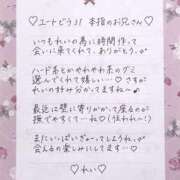 ♡ユートピア!! 本指のお兄さん♡
いつもれいの為に時間作って
会いに来てくれて、ありがとう。
ハード系とかやわやわ系のグミ
選んでくれて嬉しい…♡さすが
れいの好み分かってますね〜♪
最近は壁に寄りかかって座るのが
推めですからね…♡(うふわれ〜!)
またいっぱいぎゅーってしようね
会えるの楽しみにしてます…♡
♡れい♡